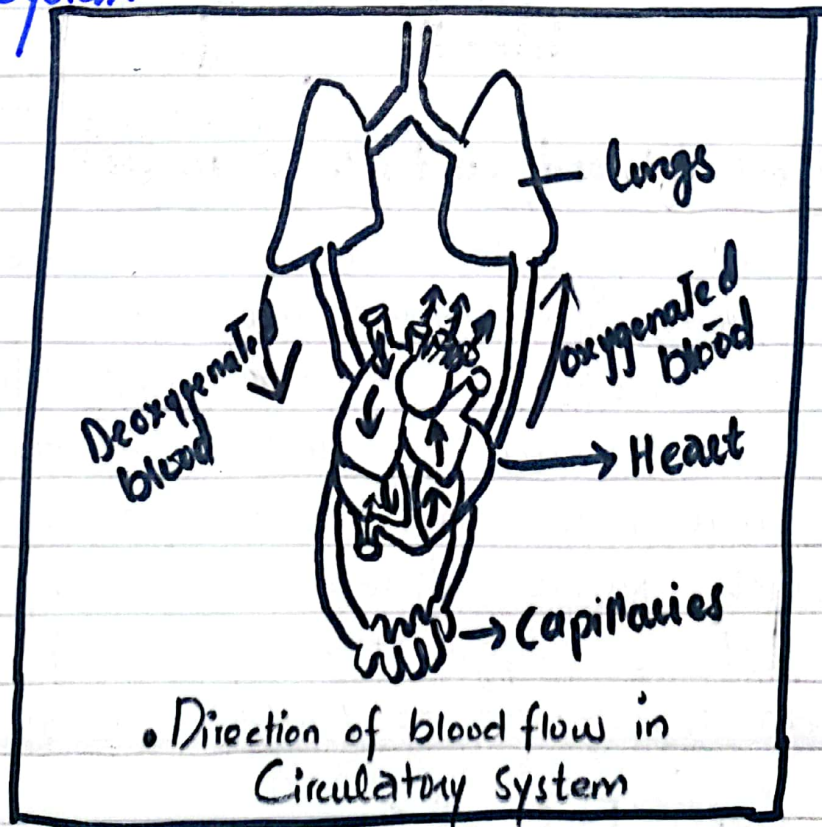 lungs
Deoxygenated
blood
oxygenated
blood
Heart
Capillaries
• Direction of blood flow in
Circulatory System